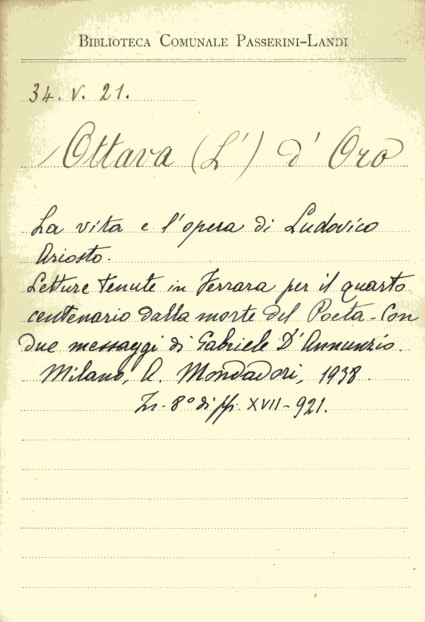 BIBLIOTECA COMUNALE PASSERINI-LANDI
34. V. 21.
Ottava (L') d'Oro
La vita e l'opera di Ludovico
Ariosto.
Letture tenute in Ferrara per il quarto
centenario dalla morte del Poeta - Con
due messaggi di Gabriele D'Annunzio.
Milano, A. Mondadori, 1938.
In- 8° di pp. XVII-921.